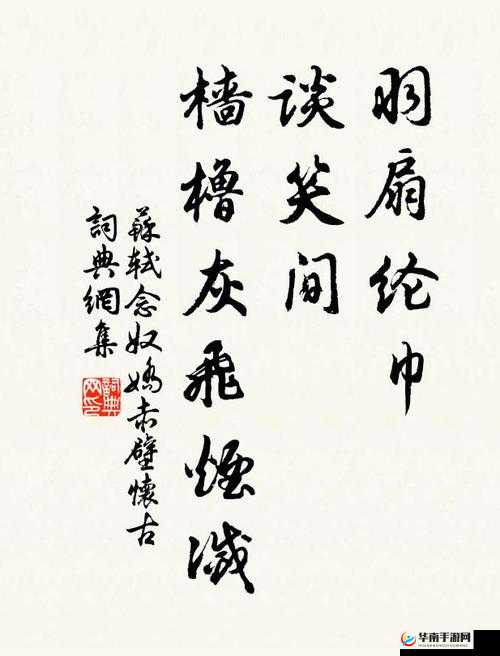 羽扇纶巾
谈笑间
樯橹灰飞烟灭
蘇轼念奴嬌赤壁懷古
詞典網集
詞典网印
华南手游网